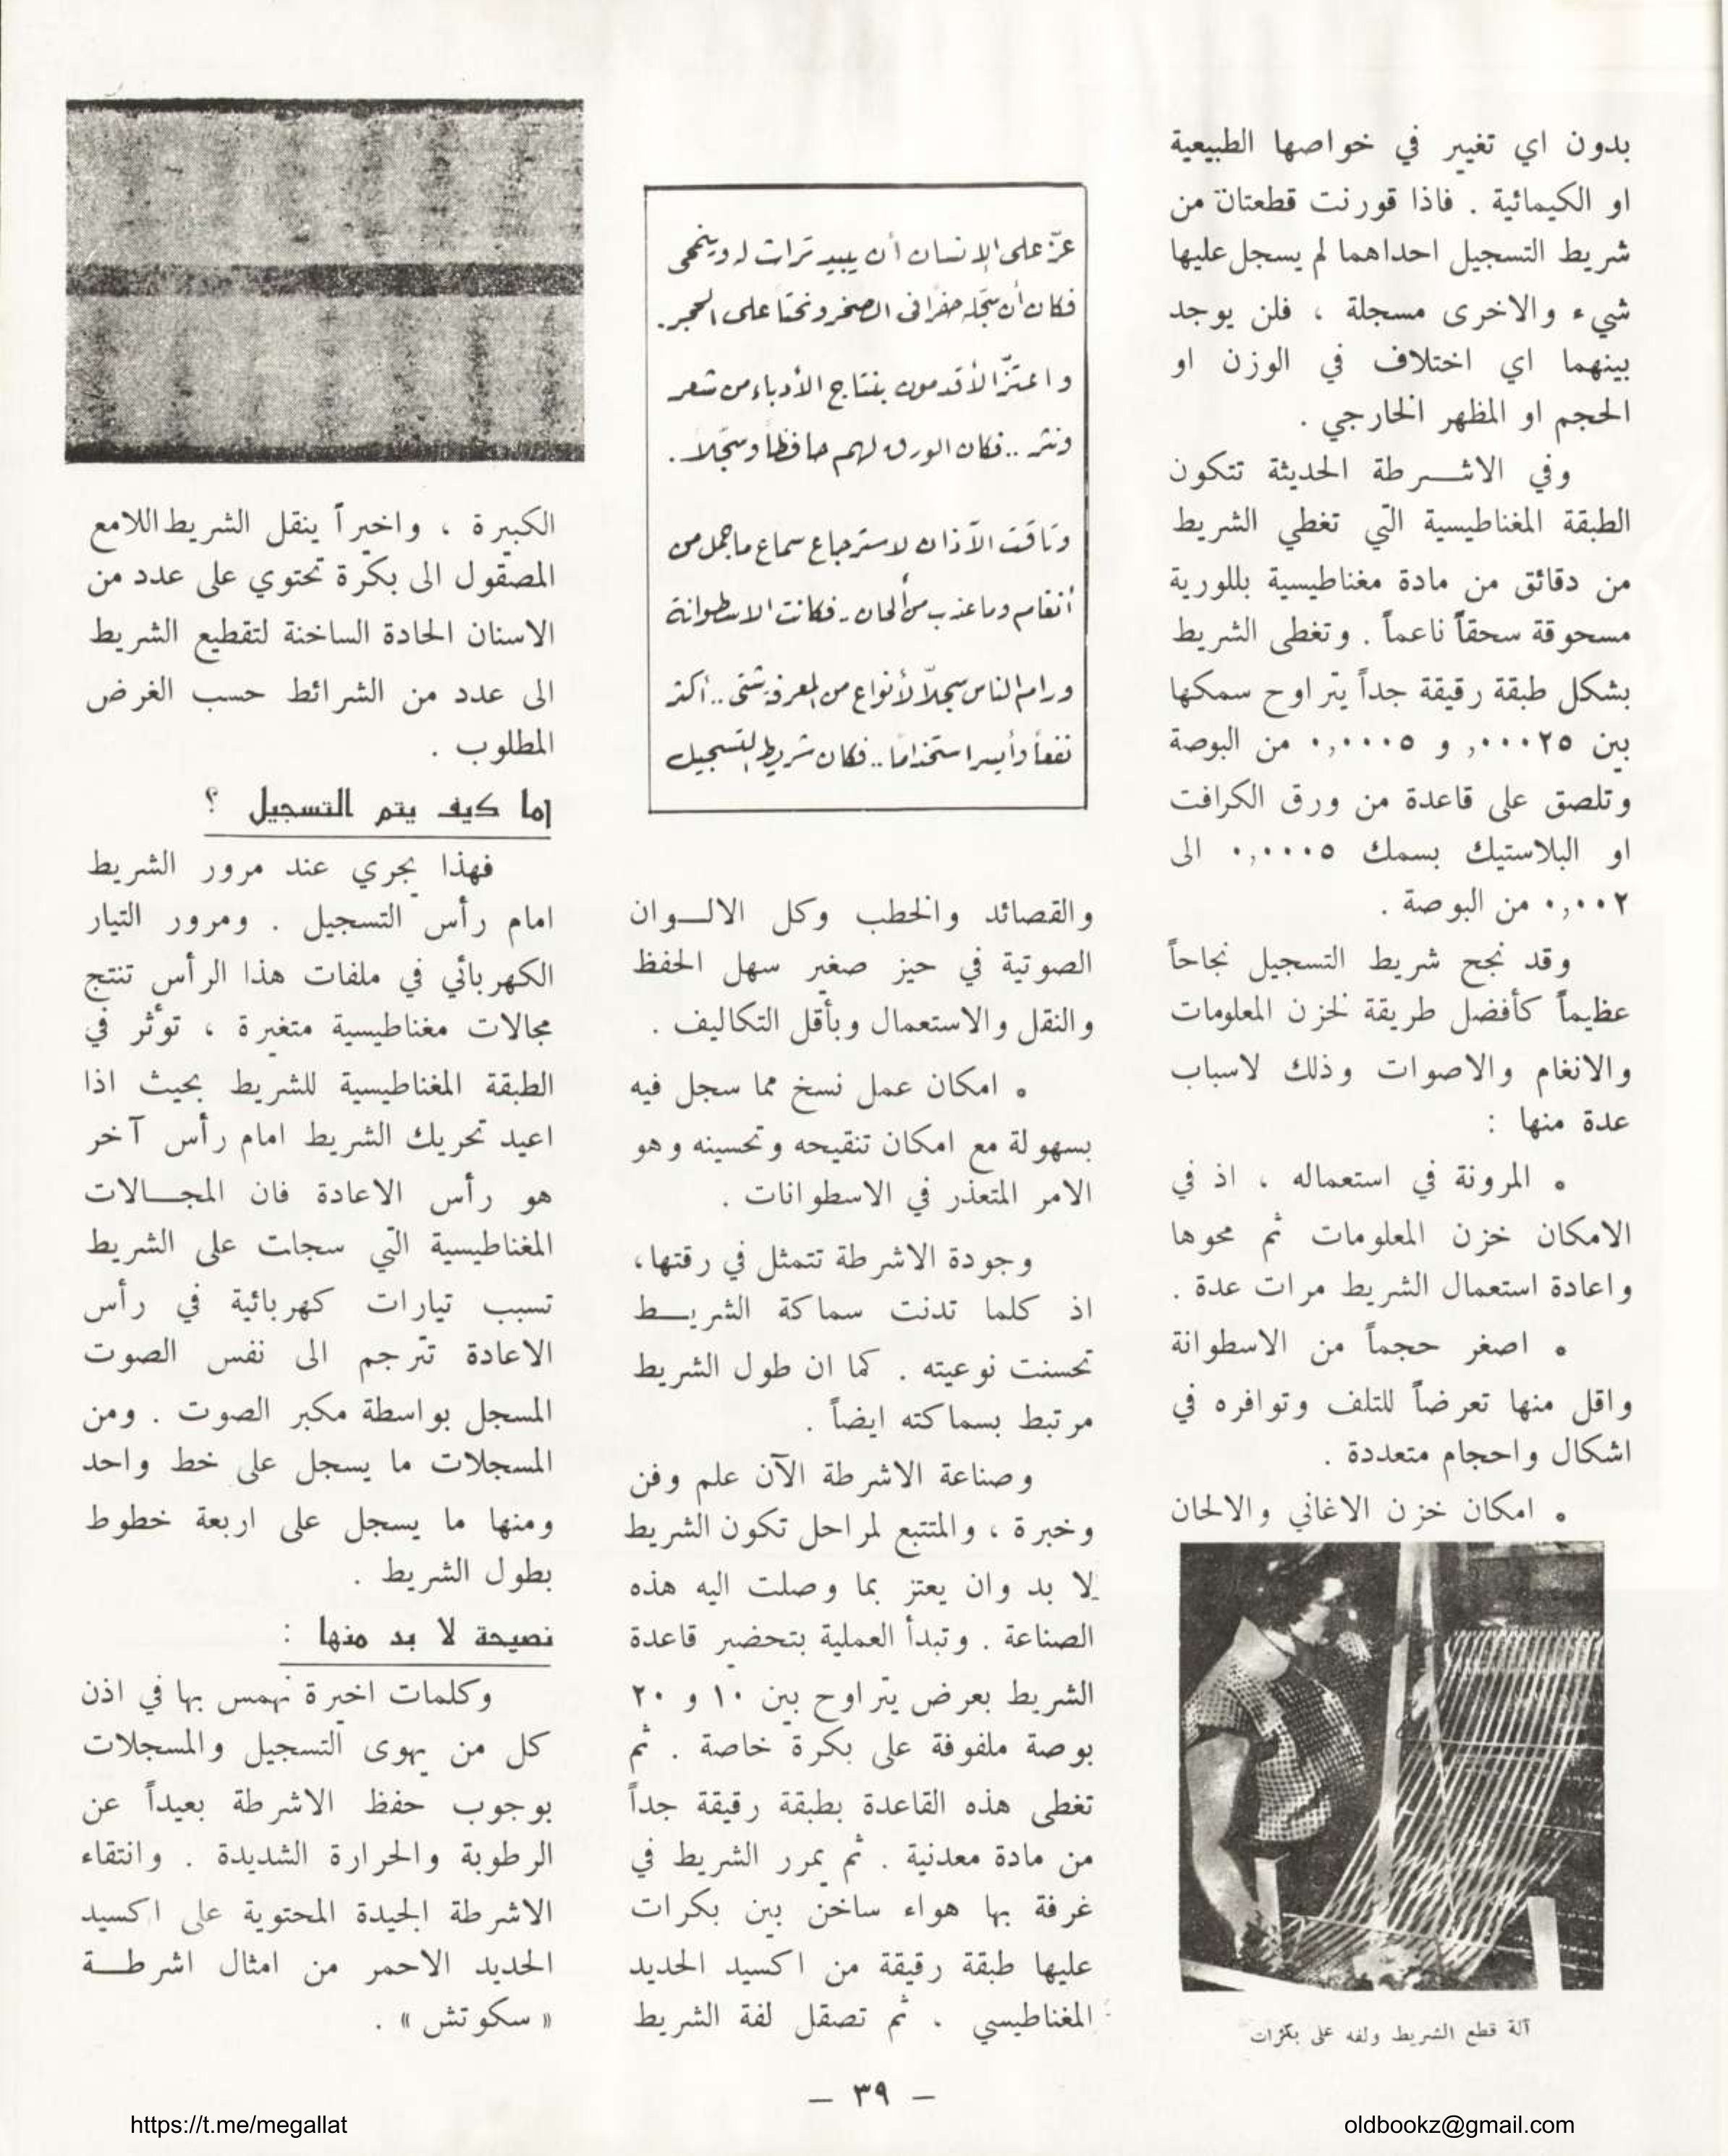 بدون اي تغيير في خواصها الطبيعية
او الكيمائية . فاذا قورنت قطعتان من
شريط التسجيل احداهما لم يسجل عليها
شيء والاخرى مسجلة ، فلن يوجد
بينهما اي اختلاف في الوزن او
الحجم او المظهر الخارجي .
وفي الاشــرطة الحديثة تتكون
الطبقة المغناطيسية التي تغطي الشريط
من دقائق من مادة مغناطيسية بللورية
مسحوقة سحقاً ناعماً . وتغطى الشريط
بشكل طبقة رقيقة جداً يتراوح سمكها
بين ٠٠٠٢٥, و ٠,٠٠٠٥ من البوصة
وتلصق على قاعدة من ورق الكرافت
او البلاستيك بسمك ٠,٠٠٠٥ الى
٠,٠٠٢ من البوصة .
وقد نجح شريط التسجيل نجاحاً
عظيماً كأفضل طريقة لخزن المعلومات
والانغام والاصوات وذلك لاسباب
عدة منها :
• المرونة في استعماله ، اذ في
الامكان خزن المعلومات ثم محوها
واعادة استعمال الشريط مرات عدة .
• اصغر حجماً من الاسطوانة
واقل منها تعرضاً للتلف وتوافره في
اشكال واحجام متعددة .
• امكان خزن الاغاني والالحان
آلة قطع الشريط ولفه على بكرات
عزّ على الإنسان أن يبيد تراث له وينمحى
فكان أن سجّله حفراً فى الصخر ونحتاً على الحجر.
واعتزّ الأقدمون بنتاج الأدباء من شعر
ونثر .. فكان الورق لهم حافظاً ومسجّلاً .
وتاقت الآذان لاسترجاع سماع ما جمل من
أنغام وما عذب من ألحان .. فكانت الاسطوانة
ورام الناس سجلاّ لأنواع من المعرفة شتى .. أكثر
نفعاً وأيسر استخداماً .. فكان شريط التسجيل
والقصائد والخطب وكل الالــوان
الصوتية في حيز صغير سهل الحفظ
والنقل والاستعمال وبأقل التكاليف .
• امكان عمل نسخ مما سجل فيه
بسهولة مع امكان تنقيحه وتحسينه وهو
الامر المتعذر في الاسطوانات .
وجودة الاشرطة تتمثل في رقتها،
اذ كلما تدنت سماكة الشريــط
تحسنت نوعيته . كما ان طول الشريط
مرتبط بسماكته ايضاً .
وصناعة الاشرطة الآن علم وفن
وخبرة ، والمتتبع لمراحل تكون الشريط
لا بد وان يعتز بما وصلت اليه هذه
الصناعة . وتبدأ العملية بتحضير قاعدة
الشريط بعرض يتراوح بين ١٠ و ٢٠
بوصة ملفوفة على بكرة خاصة . ثم
تغطى هذه القاعدة بطبقة رقيقة جداً
من مادة معدنية . ثم يمرر الشريط في
غرفة بها هواء ساخن بين بكرات
عليها طبقة رقيقة من اكسيد الحديد
المغناطيسي . ثم تصقل لفة الشريط
الكبيرة ، واخيراً ينقل الشريط اللامع
المصقول الى بكرة تحتوي على عدد من
الاسنان الحادة الساخنة لتقطيع الشريط
الى عدد من الشرائط حسب الغرض
المطلوب .
اما كيف يتم التسجيل ؟
فهذا يجري عند مرور الشريط
امام رأس التسجيل . ومرور التيار
الكهربائي في ملفات هذا الرأس تنتج
مجالات مغناطيسية متغيرة ، تؤثر في
الطبقة المغناطيسية للشريط بحيث اذا
اعيد تحريك الشريط امام رأس آخر
هو رأس الاعادة فان المجــالات
المغناطيسية التي سجلت على الشريط
تسبب تيارات كهربائية في رأس
الاعادة تترجم الى نفس الصوت
المسجل بواسطة مكبر الصوت . ومن
المسجلات ما يسجل على خط واحد
ومنها ما يسجل على اربعة خطوط
بطول الشريط .
نصيحة لا بد منها :
وكلمات اخيرة نهمس بها في اذن
كل من يهوى التسجيل والمسجلات
بوجوب حفظ الاشرطة بعيداً عن
الرطوبة والحرارة الشديدة . وانتقاء
الاشرطة الجيدة المحتوية على اكسيد
الحديد الاحمر من امثال اشرطــة
« سكوتش » .
— ٣٩ —
https://t.me/megallat
oldbookz@gmail.com